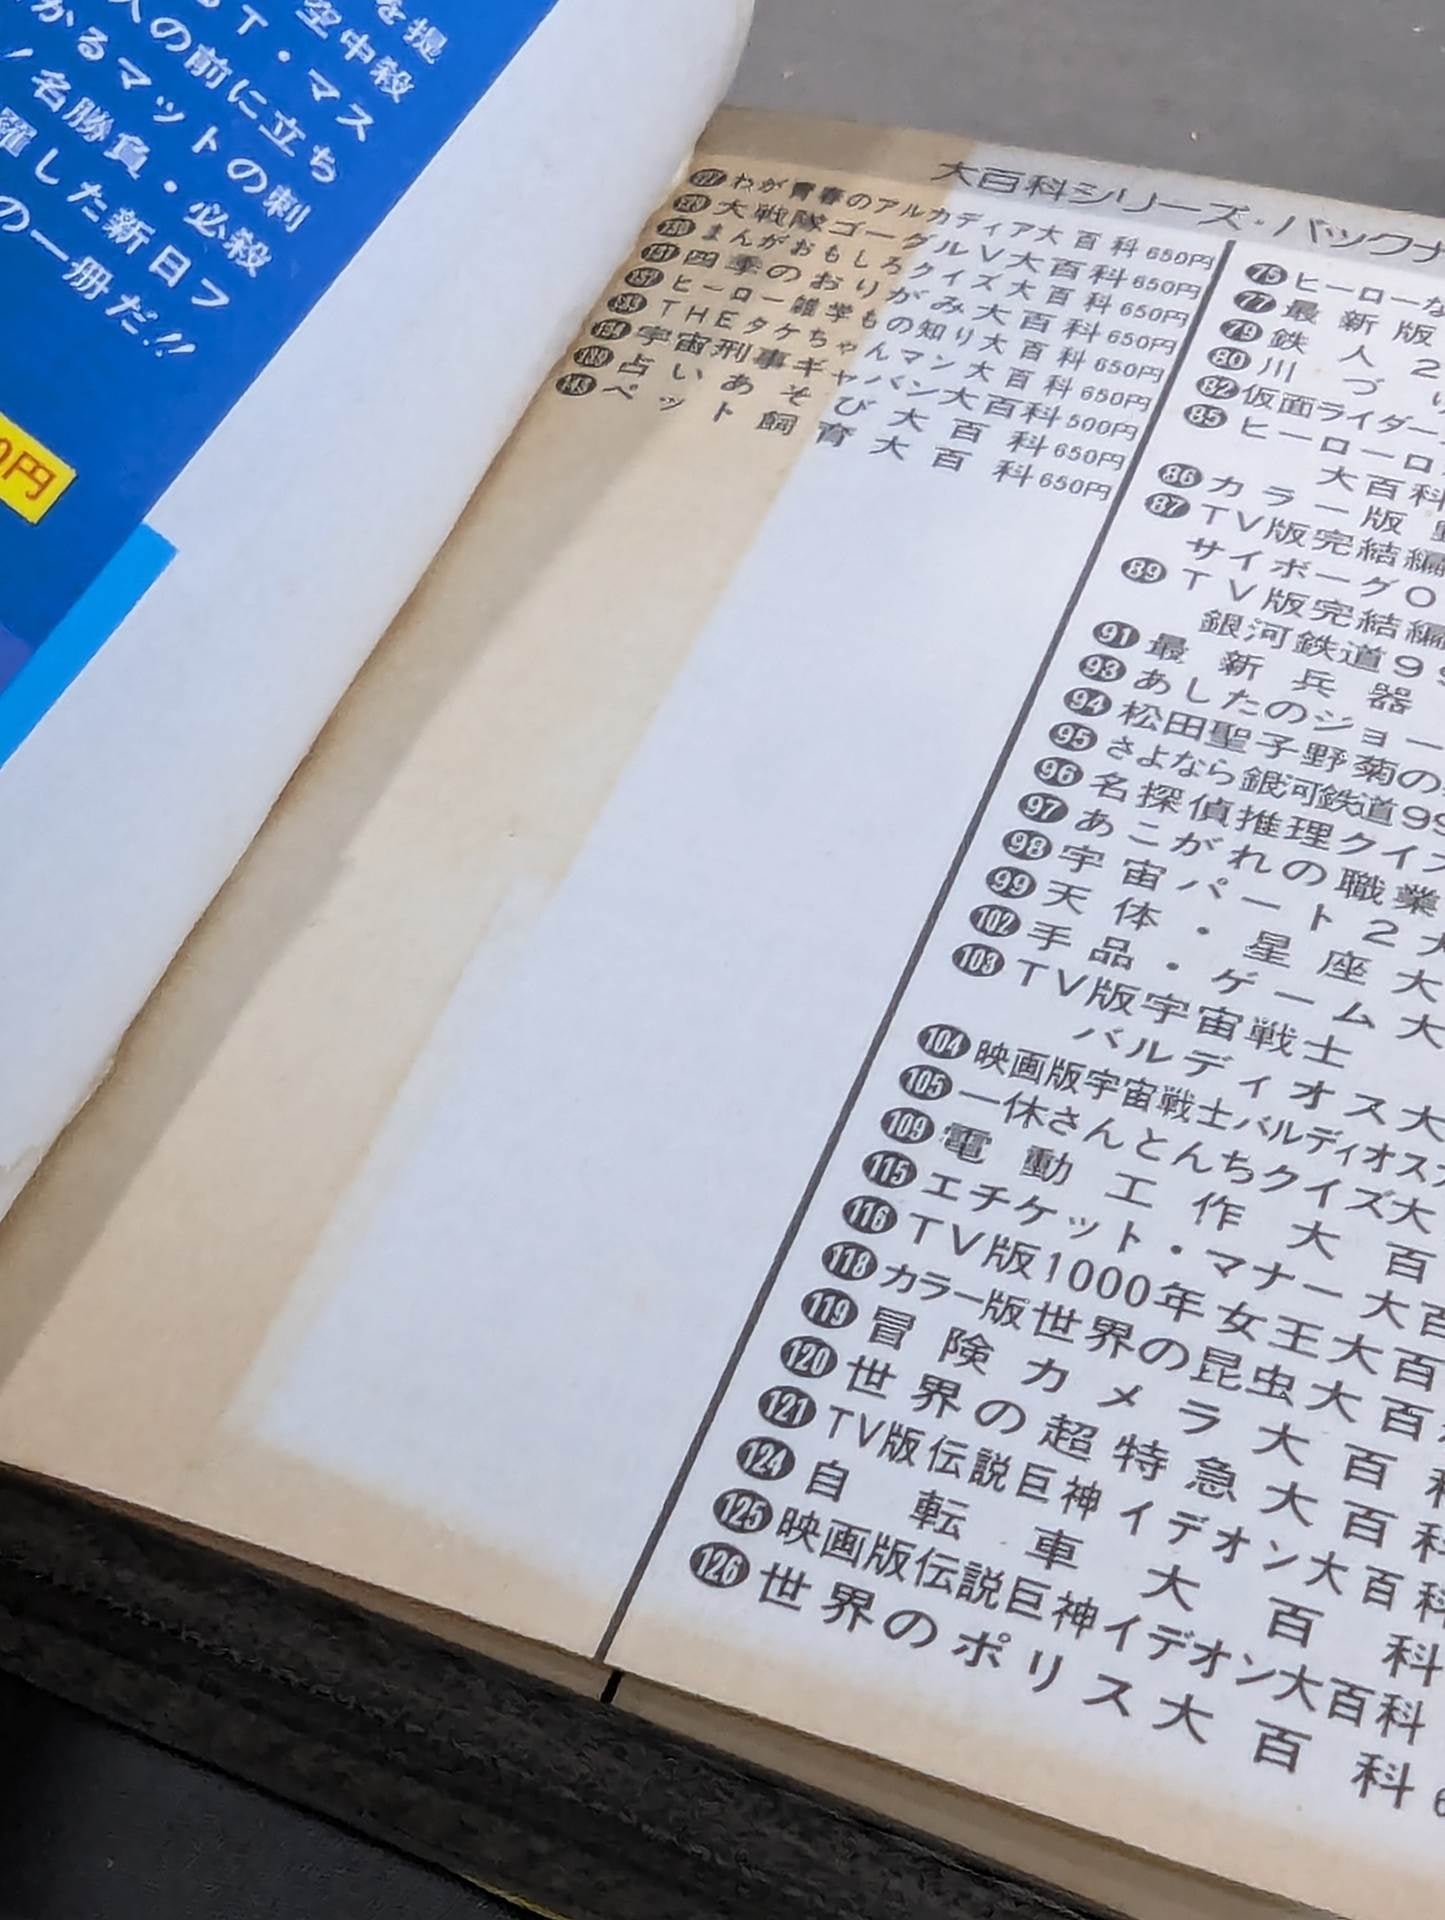 を提
空中殺
T・マス
かるマットの刺
人の前に立ち
名勝負・必殺
躍した新日フ
の一冊だ!!
0円
大百科シリーズ・バックナ
わが青春のアルカディア大百科650円
大戦隊ゴーグルV大百科650円
130まんがおもしろクイズ大百科650円
131四季のおりがみ大百科650円
132ヒーロー雑学もの知り大百科650円
133THEタケちゃんマン大百科650円
134宇宙刑事ギャバン大百科500円
占いあそび大百科650円
ペット飼育大百科650円
75ヒーローな
77最新版
79鉄人2
80川づり
82仮面ライダー
85ヒーローロ
大百科
86カラー版
87TV版完結編
サイボーグ0
89TV版完結編
銀河鉄道99
91最新兵器
93あしたのジョー
94松田聖子野菊の
95さよなら銀河鉄道99
96名探偵推理クイズ
97あこがれの職業
98宇宙パート2大
99天体・星座大
102手品・ゲーム大
103TV版宇宙戦士
バルディオス大
104映画版宇宙戦士バルディオス大
105一休さんとんちクイズ大
109電動工作大百
115エチケット・マナー大百
116TV版1000年女王大百
118カラー版世界の昆虫大百
119冒険カメラ大百科
120世界の超特急大百科
121TV版伝説巨神イデオン大百科
124自転車大百科
125映画版伝説巨神イデオン大百科
126世界のポリス大百科6